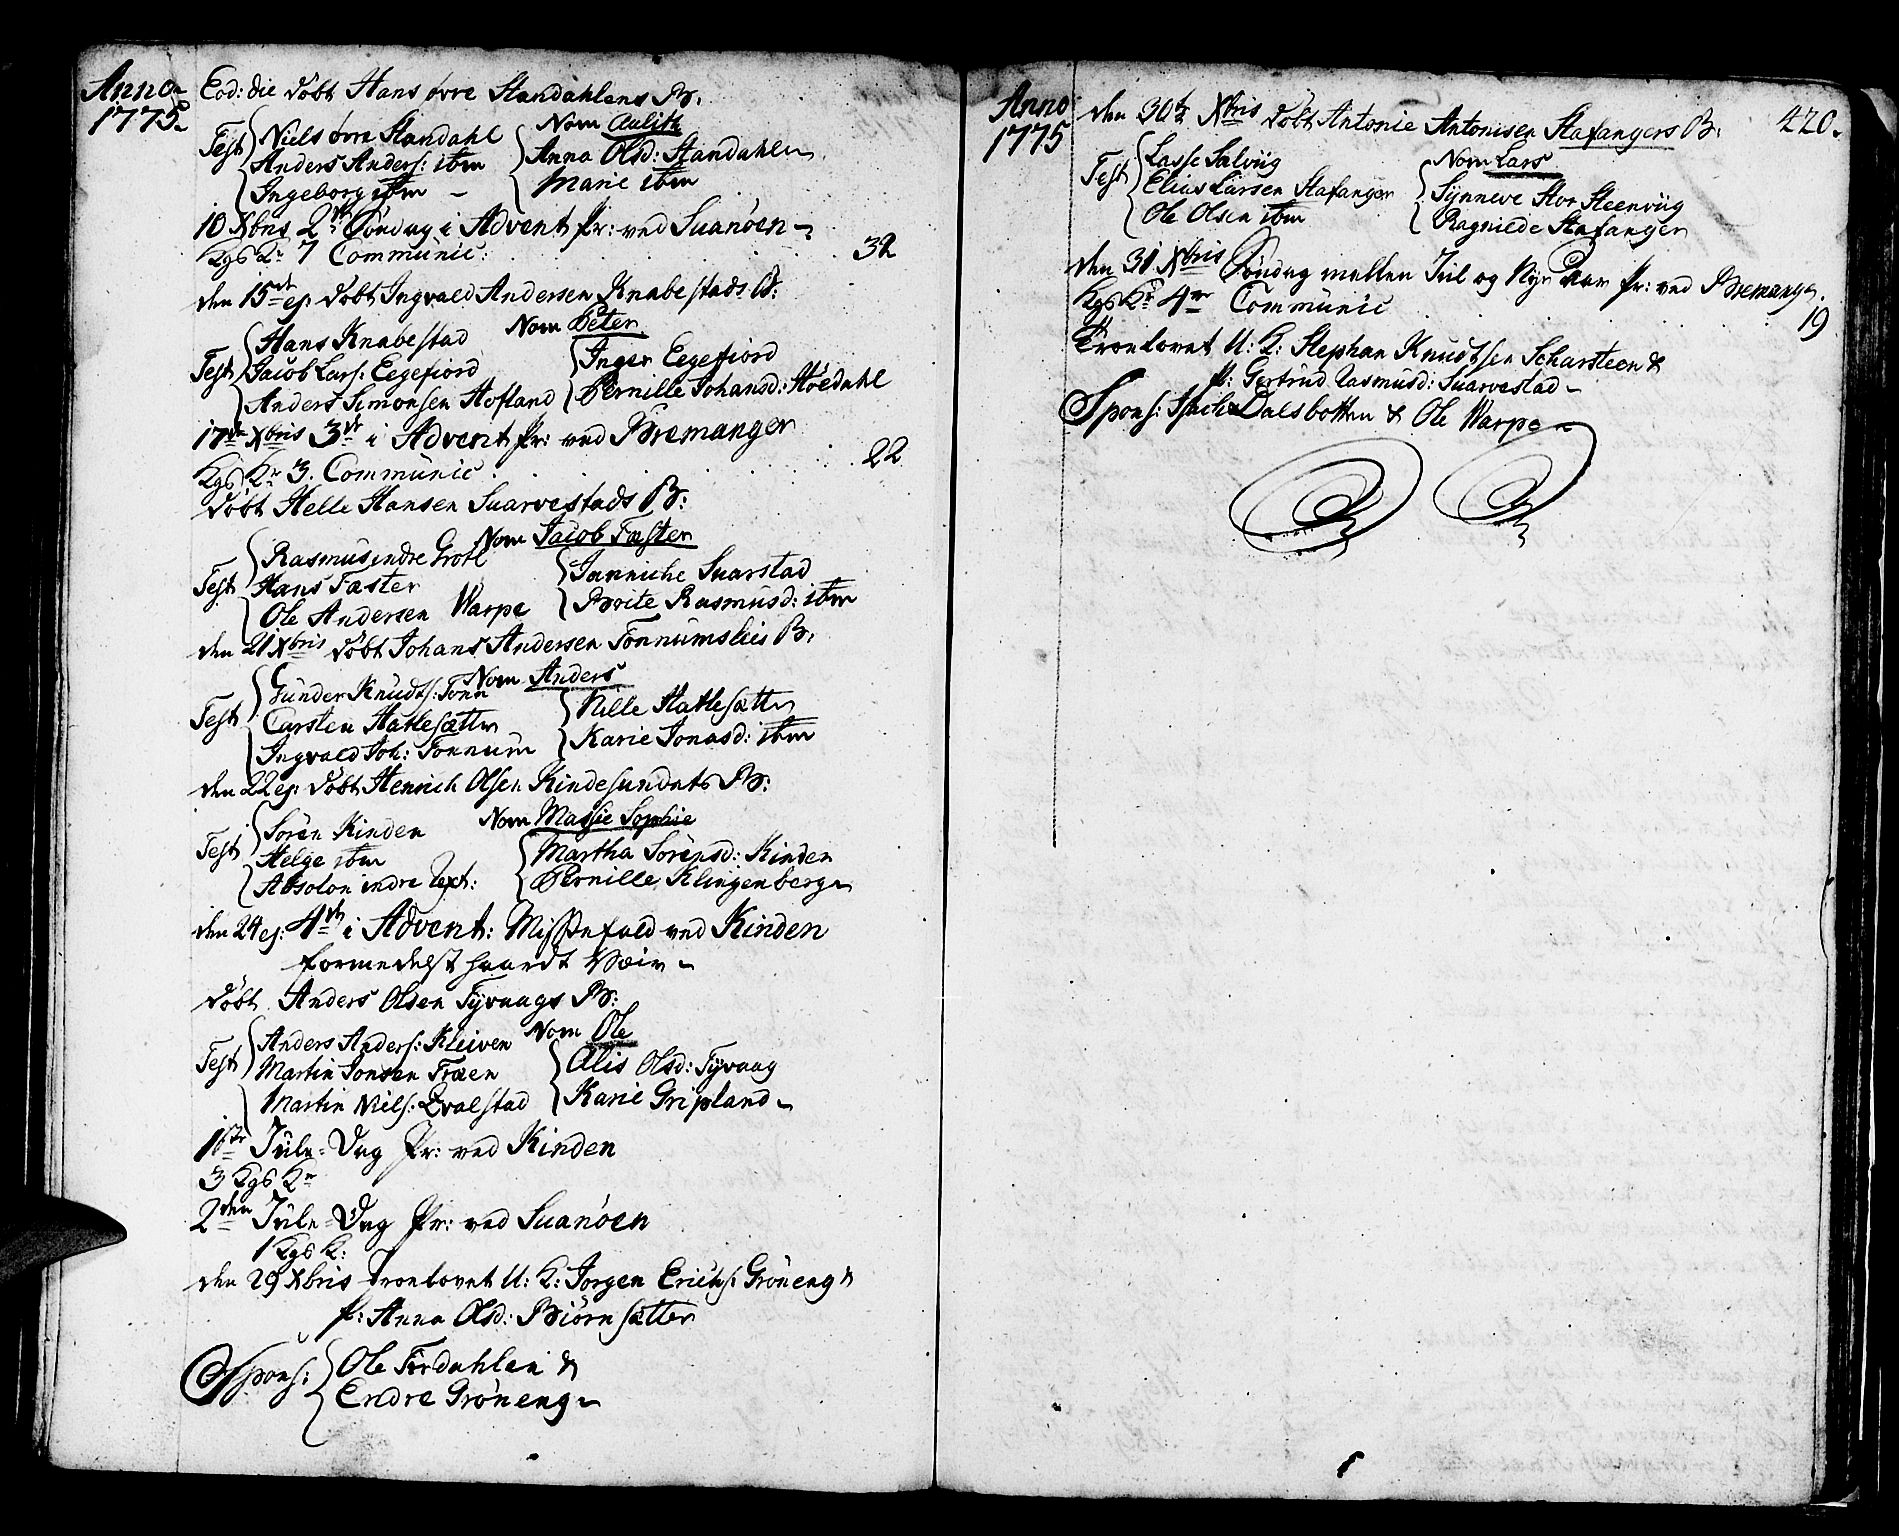 Anno
1775.
Eod: die döbt Hans övre Standahlens B:
Nom Aulith
Test Niels övre Standahl
Anders Anders: ibm
Ingeborg ibm
Anna Olsd: Standahlen
Marie ibm
10 Xbris 2den Söndag i Advent Pr: ved Suanöen
Kgs Kr 7 Communic: 32
den 15de ej. döbt Ingvald Andersen Knabestads B:
Nom Peter
Test Hans Knabestad
Jacob Lars: Eegefiord
Anders Simonsen Hofland
Inger Eegefiord
Pernille Johansd: Höedahl
17de Xbris 3de i Advent Pr: ved Bremanger
Kgs Kr 3. Communic 22
döbt Helle Hansen Suarvestads B:
Nom Jacob Faster
Test Rasmus indre Grotl
Hans Faster
Ole Andersen Warpe
Janniche Suarstad
Brite Rasmusd: ibm
den 21 Xbris döbt Johans Andersen Tonnumslies B:
Nom Anders
Test Gunder Knudts: Tonn
Carsten Hatlesætter
Ingvald Joh: Tonnum
Nille Hatlesætter
Karie Jonasd: ibm
den 22 ej. döbt Henrich Olsen Kindesundets B:
Nom Massie Sophie
Test Sören Kinden
Helge ibm
Absolon indre Rext:
Martha Sörensd: Kinden
Pernille Klingenberg
den 24 ej: 4de i Advent: Missefald ved Kinden
formedelst haardt Væir
döbt Anders Olsen Tyvaags B:
Nom Ole
Test Anders Anders: Kleiven
Martin Jonsen Froen
Martin Niels: Qvalstad
Alis Olsd: Tyvaag
Karie Gripland
1ste Jule-Dag Pr: ved Kinden
3 Kgs Kr
2den Jule-Dag Pr: ved Suanöen
1 Kgs K:
den 29 Xbris Trolovet U: K: Jorgen Erichs: Gröneng &
P: Anna Olsd: Biörnsætter
Spons: Ole Fördahlen &
Endre Gröneng
Anno
1775
420.
den 30te Xbris döbt Antonie Antonisen Stafangers B:
Nom Lars
Test Lasse Salviig
Elias Larsen Stafanger
Ole Olsen ibm
Synneve Stor Steenviig
Ragnilde Stafanger
den 31 Xbris Söndag mellem Juul og Nyt Aar Pr: ved Bremanger.
Kgs Kr 4re Communic 19
Trolovet U: K: Stephan Knudtsen Scharsteen &
P: Gertrud Rasmusd: Suarvestad
Spons: Isach Dalsbotten & Ole Warpe